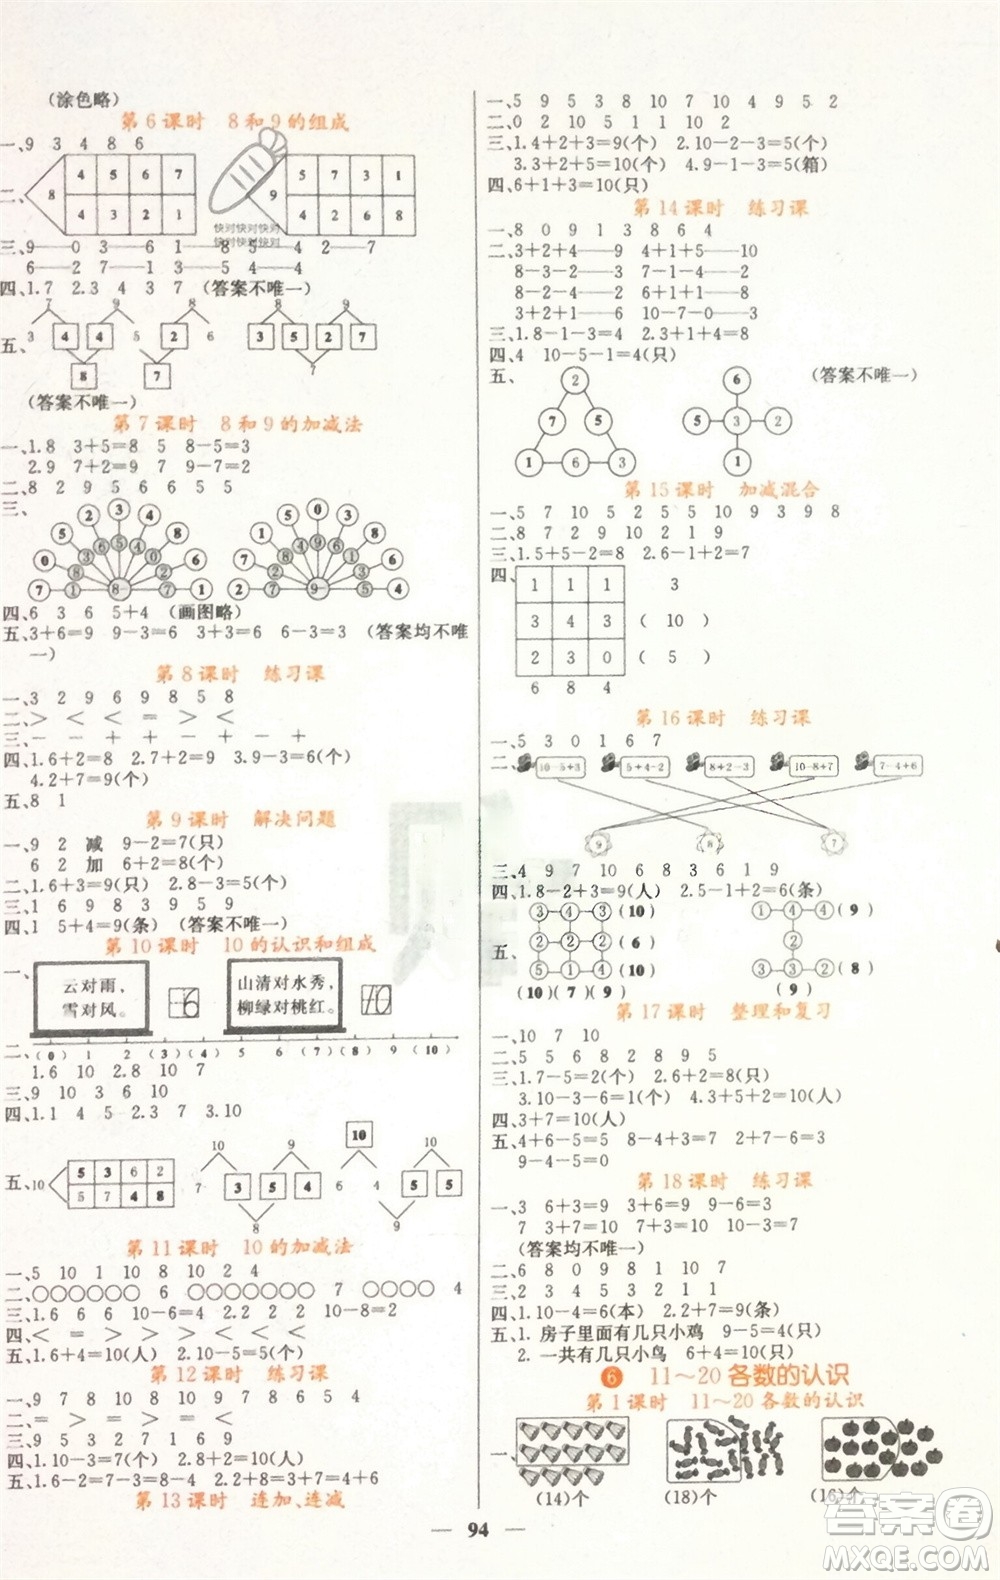 (涂色略)
第6课时 8和9的组成
一、9 3 4 8 6
二、
8
4 5 6 7
4 3 2 1
9
5 7 3 1
4 2 6 8
快对快对快对
快对快对快对
三、9——0 3——6 1——8 5——4 2——7
6——2 7——1 3——5 4——4
四、1.7 2.3 4 3 7 (答案不唯一)
五、
7 9 9 8
3 4 4 5 2 6 3 5 2 7
8 7 7
(答案不唯一)
第7课时 8和9的加减法
一、1.8 3+5=8 5 8-5=3
2.9 7+2=9 7 9-7=2
二、8 2 9 5 6 5 5
三、
四、6 3 6 5+4 (画图略)
五、3+6=9 9-3=6 3+3=6 6-3=3 (答案均不唯一)
第8课时 练习课
一、3 2 9 6 9 8 5 8
二、> < < = > <
三、- - + + - - +
四、1.6+2=8 2.7+2=9 3.9-3=6(个)
4.2+7=9(个)
五、8 1
第9课时 解决问题
一、9 2 减 9-2=7(只)
6 2 加 6+2=8(个)
二、1.6+3=9(个) 2.8-3=5(个)
三、1 6 9 8 3 9 5 9
四、1 5+4=9(条) (答案不唯一)
第10课时 10的认识和组成
一、
云对雨,
雪对风。
6
山清对水秀,
柳绿对桃红。
10
二、(0) 1 2 (3) (4) 5 6 (7) (8) 9 (10)
1.6 10 2.8 10 7
三、9 10 3 6 10
四、1.1 4 5 2.3 7 3.10
五、
10
5 3 6 2
5 7 4 8
10 9 10 10
7 3 5 4 6 4 5 5
8 9
第11课时 10的加减法
一、5 10 1 10 8 10 2 4
二、○○○○○○ 6 ○○○○○○○ 7 ○○○○ 4
三、1.6 6 6 10-6=4 2.2 2 2 10-8=2
四、< = > > > <
五、1.6+4=10(人) 2.10-5=5(个)
第12课时 练习课
一、9 7 8 10 8 10 9 7 8 6 5 4
二、= > = > < >
三、9 5 9 9 7 9
四、1.10-3=7(个) 2.8+2=10(人)
五、1.6-2=7-3 2.2+8=9+1=4+6
第13课时 连加、连减
一、5 9 5 3 8 10 7 10 4 9 5 2
二、0 2 10 5 10 2
三、1.4+2+3=9(个) 2.10-2-3=5(个)
3.3+2+5=10(个) 4.9-1-3=5(箱)
四、6+1+3=10(只)
第14课时 练习课
一、8 0 9 1 3 8 6 4
二、3+2+4——9 4+1+5——10
8-3-2——3 7-1-4——2
8-2-4——2 6+1+1——8
3+2+1——6 10-7-0——3
三、1.8-1-3=4 2.3+1+4=8
四、4 10-5-1=4(只)
五、 (答案不唯一)
2
7 5
1 6 3
6
5 3 2
1
第15课时 加减混合
一、5 7 10 5 2 5 5 10 9 3 9 8
二、8 7 2 9 10 5 2
三、1.5+5-2=8 2.6-1+2=7
四、
1 1 1 3
3 4 3 (10)
2 3 0 (5)
6 8 4
第16课时 练习课
一、5 3 0 1 6 7
二、
10-5+3 5+4-2 8+2-3 10-8+7 7-4+6
9 8 7
三、4 9 7 10 6 8 3 6 1 9
四、1.8-2+3=9(人) 2.5-1+2=6(条)
五、
3 4 3 (10)
2 2 2 (6)
5 1 4 (10)
(10)(7)(9)
1 4 4 (9)
2
5 1 2 (8)
(9)
第17课时 整理和复习
一、10 7 10
二、5 5 6 8 2 3 10
三、1.7-5=2(只) 2.6+2=8(只)
3.10-3-6=1(个) 4.3+5+2=10(人)
四、3+7=10(人)
五、4+6-5=5 8-4+3=7 2+7-3=6
9-4-5=0
第18课时 练习课
一、3 6+3=9 3+6=9 9-6=3
7 3+7=10 7+3=10 10-3=7
(答案均不唯一)
二、6 8 0 9 8 1 10 7
三、2 3 4 5 3 2 1
四、1.10-4=6(本) 2.2+7=9(条)
五、1. 房子里面有几只小鸡 9-5=4(只)
2. 一共有几只小鸟 6+4=10(只)
6 11~20各数的认识
第1课时 11~20各数的认识
一、
(14)个 (18)个 (16)个
94
答案圈
MXQE.COM